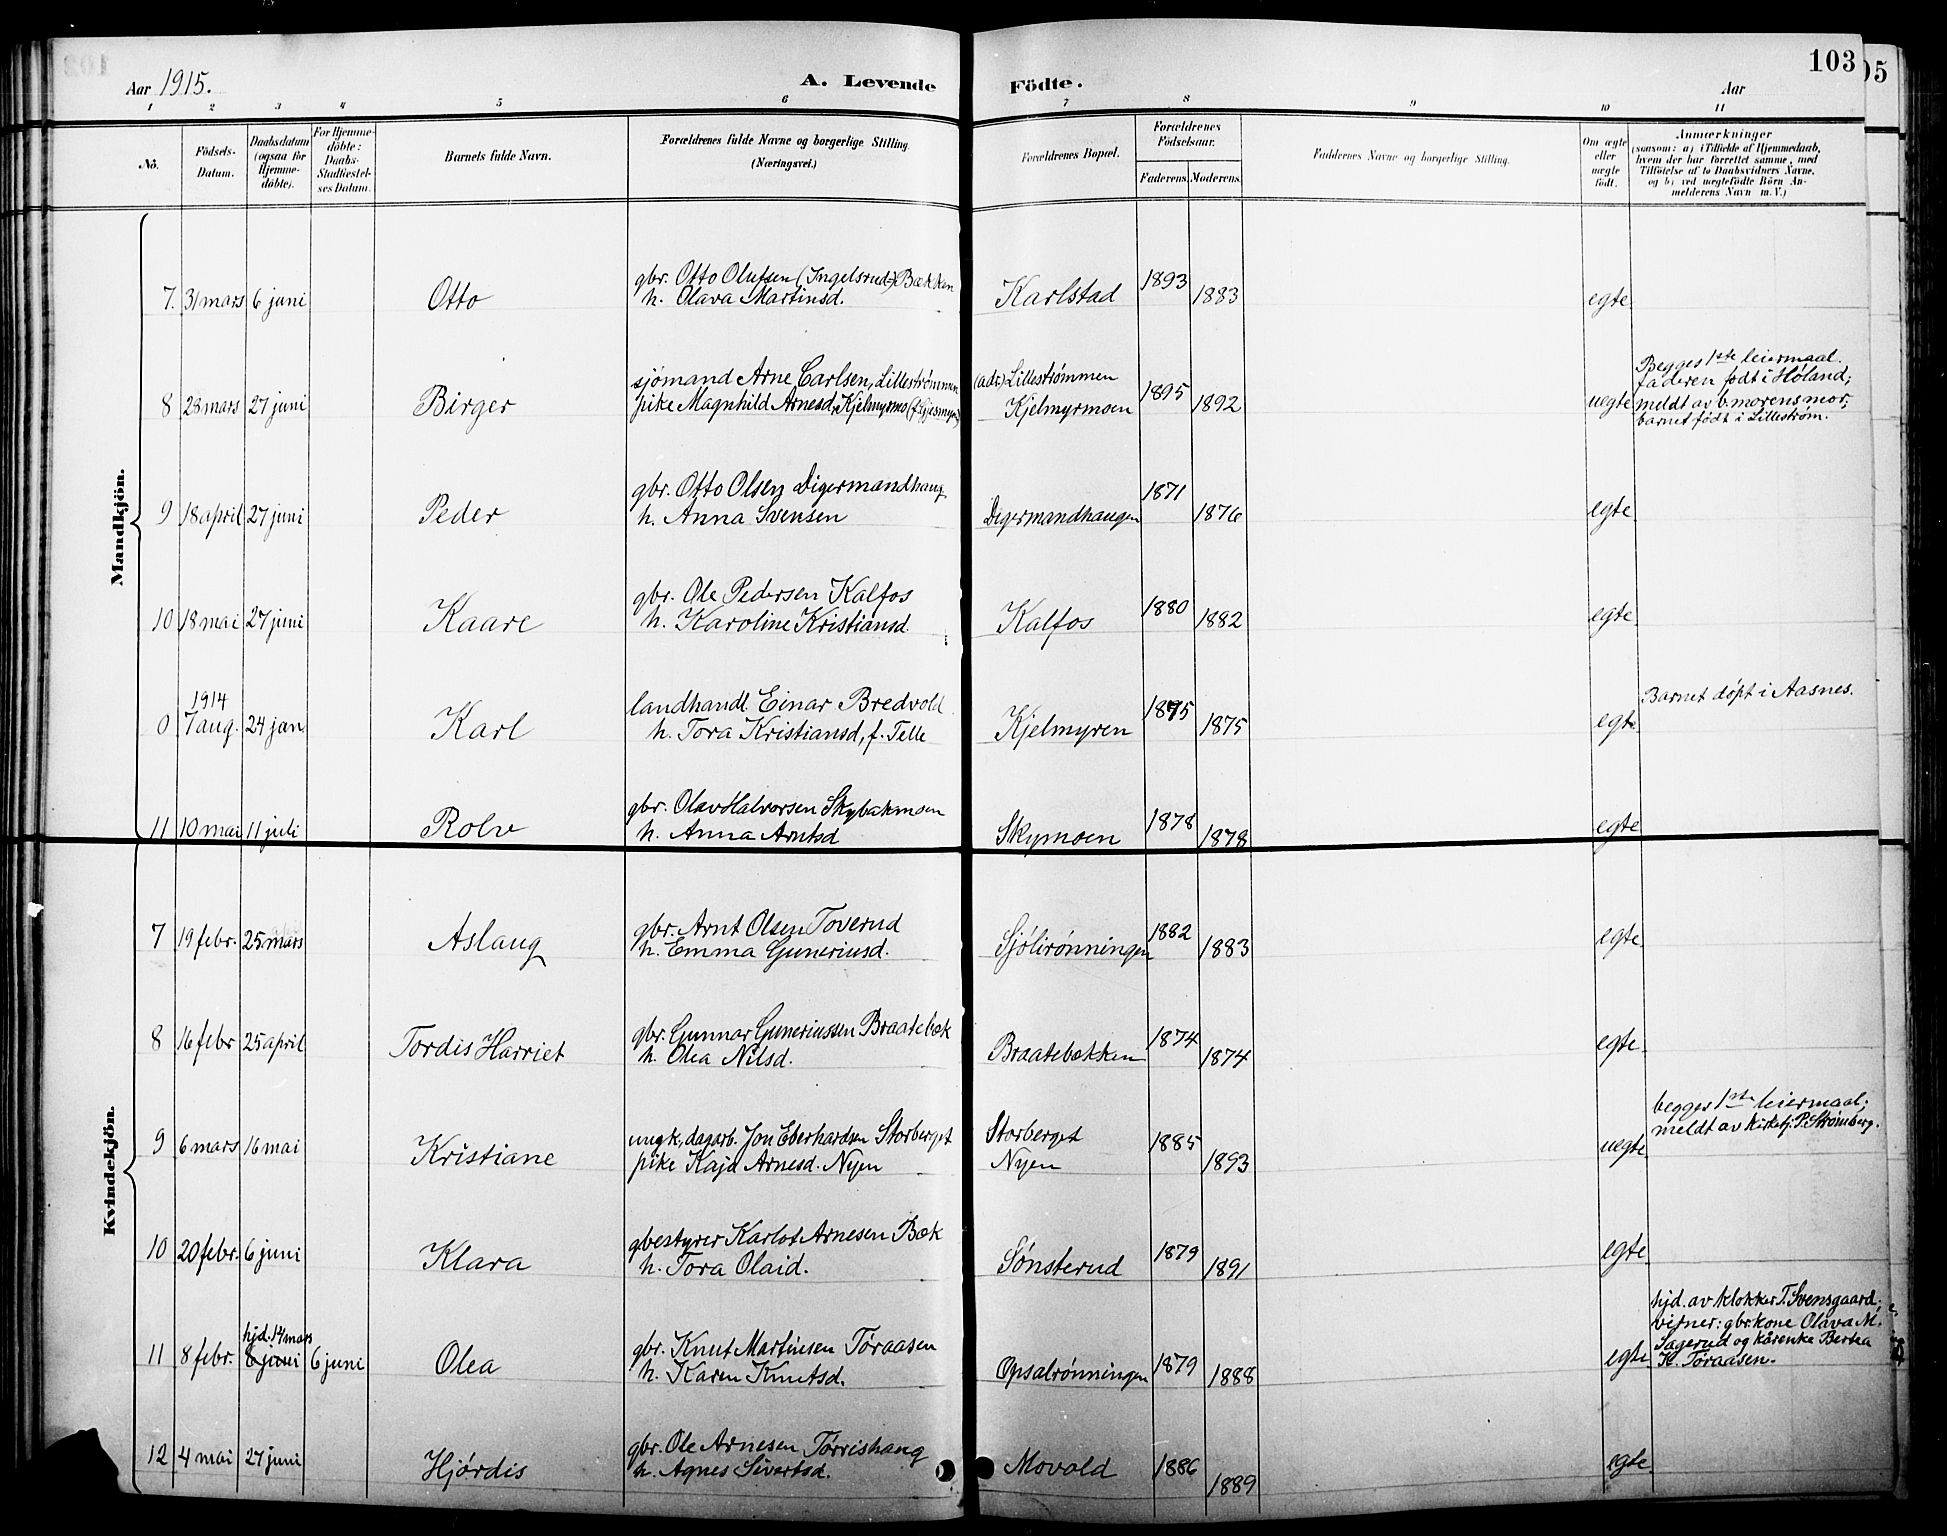 103
Aar 1915.
A. Levende Födte.
Aar
1 2 3 4 5 6 7 8 9 10 11
No.
Födsels-Datum.
Daabsdatum (ogsaa for Hjemme-döbte).
For Hjemme-döbte: Daabs-Stadfæstel-ses Datum.
Barnets fulde Navn.
Forældrenes fulde Navne og borgerlige Stilling. (Næringsvei.)
Forældrenes Bopæl.
Forældrenes Födselsaar.
Faderens. Moderens.
Faddernes Navne og borgerlige Stilling.
Om ægte eller uægte födt.
Anmærkninger
(saasom: a) i Tilfælde af Hjemmedaab,
hvem der har forrettet samme, med
Tilföielse af to Daabsvidners Navne,
og b) ved uægtefödte Börn An-
melderens Navn m. V.)
Mandkjön.
7. 31 mars 6 juni Otto gbr. Otto Olufsen (Ingelsrud-) Bækken
h. Olava Martinsd. Karlstad 1893 1883 egte
8 28 mars 27 juni Birger sjømand Arne Carlsen, Lillestrømmen
pike Magnhild Arnesd. Kjelmyrmo (f. Gjesmyr)
(adr.) Lillestrømmen
Kjelmyrmoen 1895 1892 uegte
Begges 1ste leiermaal.
faderen født i Høland;
meldt av b. morens mor;
barnet født i Lillestrøm.
9 18 april 27 juni Peder gbr. Otto Olsen Digermandhaug
h. Anna Svensen Digermandhaugen 1871 1876 egte
10 18 mai 27 juni Kaare gbr. Ole Pedersen Kalfos
h. Karoline Kristiansd. Kalfos 1880 1882 egte
1914
0 7 aug. 24 jan Karl landhandl. Einar Bredvold
h. Tora Kristiansd, f. Telle Kjelmyren 1875 1875 egte
Barnet døpt i Aasnes.
11 10 mai 11 juli Rolv gbr. Olav Halvorsen Skybakmoen
h. Anna Arntsd Skymoen 1878 1878 egte
Kvindekjön.
7 19 febr. 25 mars Aslaug gbr. Arnt Olsen Toverud
h. Emma Guneriusd. Sjølirønningen 1882 1883 egte
8 16 febr 25 april Tordis Harriet gbr. Gunnar Guneriussen Braatebæk
h. Olea Nilsd. Braatebækken 1874 1874 egte
9 6 mars 16 mai Kristiane ungk, dagarb. Jon Eberhardsen Storberget
pike Kaja Arnesd. Nyen
Storberget
Nyen 1885 1893 uegte
begges 1ste leiermaal;
meldt av kirketj. P. Strømberg.
10 20 febr. 6 juni Klara gbestyrer Karlot Arnesen Bæk
h. Tora Olaid. Sønsterud 1879 1891 egte
11 8 febr. hjd. 14 mars
6 juni 6 juni Olea gbr. Knut Martinsen Tøraasen
h. Karen Knutsd. Opsalrønningen 1879 1888 egte
hjd. av klokker T. Svensgaard;
vidner: gbrkone Olava M.
Sagerud og kårenke Bertea
K. Tøraasen.
12 4 mai 27 juni Hjørdis gbr. Ole Arnesen Tørrishaug
h. Agnes Sivertsd. Movold 1886 1889 egte